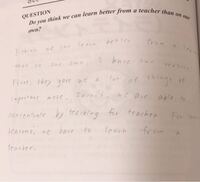 QUESTION
Do you think we can learn better from a teacher than on our
own?
I think we can learn better from a
than on our own. I have two reasons.
First, they gave us a lot of things of
important more. Second, we are able to
concentrate by teaching for teacher. For
reasons, we have to learn from a
teacher.